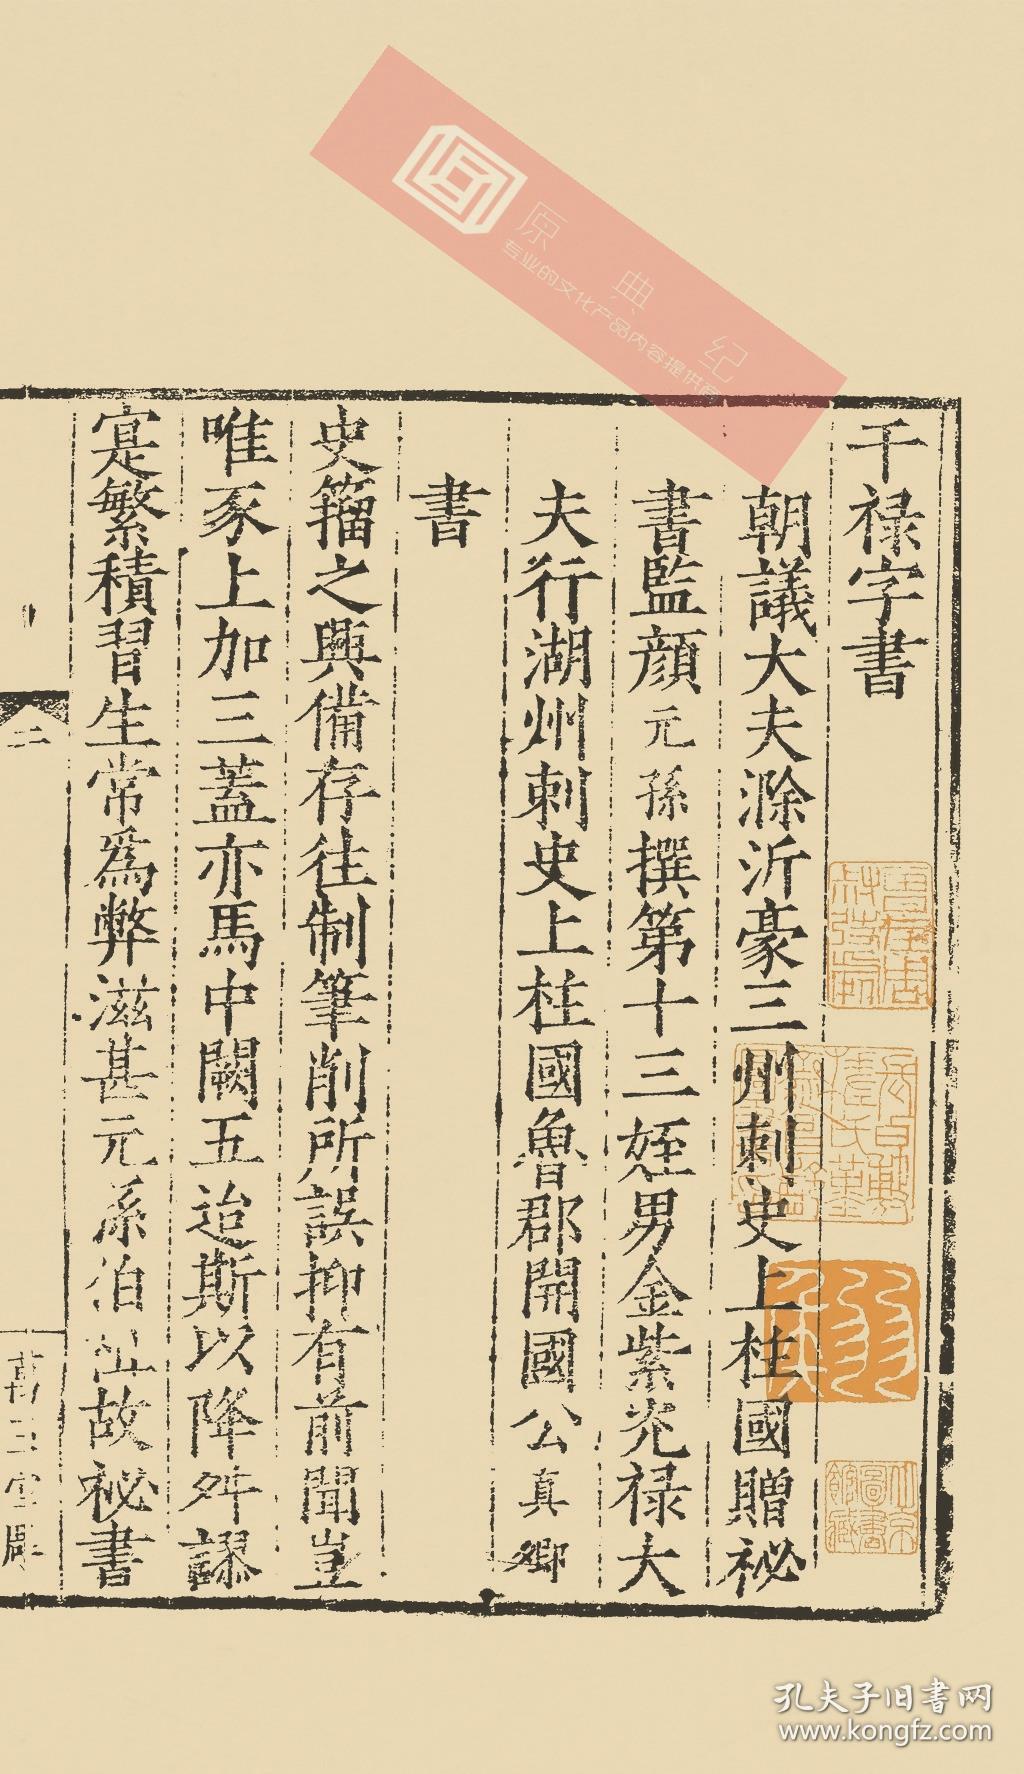 干禄字書
朝議大夫滁沂豪三州刺史上柱國贈祕
書監顔元孫撰第十三姪男金紫光禄大
夫行湖州刺史上柱國魯郡開國公真卿
書
史籀之興備存往制筆削所誤抑有前聞豈
唯豕上加三蓋亦馬中闕五迨斯以降舛謬
寔繁積習生常爲弊滋甚元孫伯祖故祕書
二
原典纪
专业的文化产品内容提供商
孔夫子旧书网
www.kongfz.com